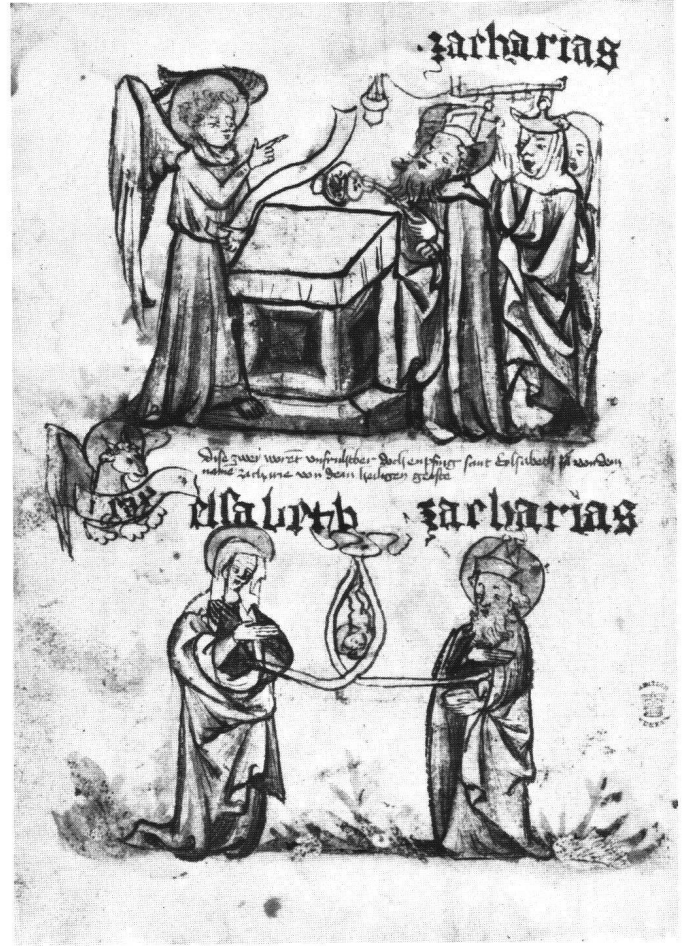 zacharias
dise zwei worent unfruhtber doch enpfing sant Elsabeth von dem
nohe zacharie von dem heiligen geiste
elsabeth zacharias